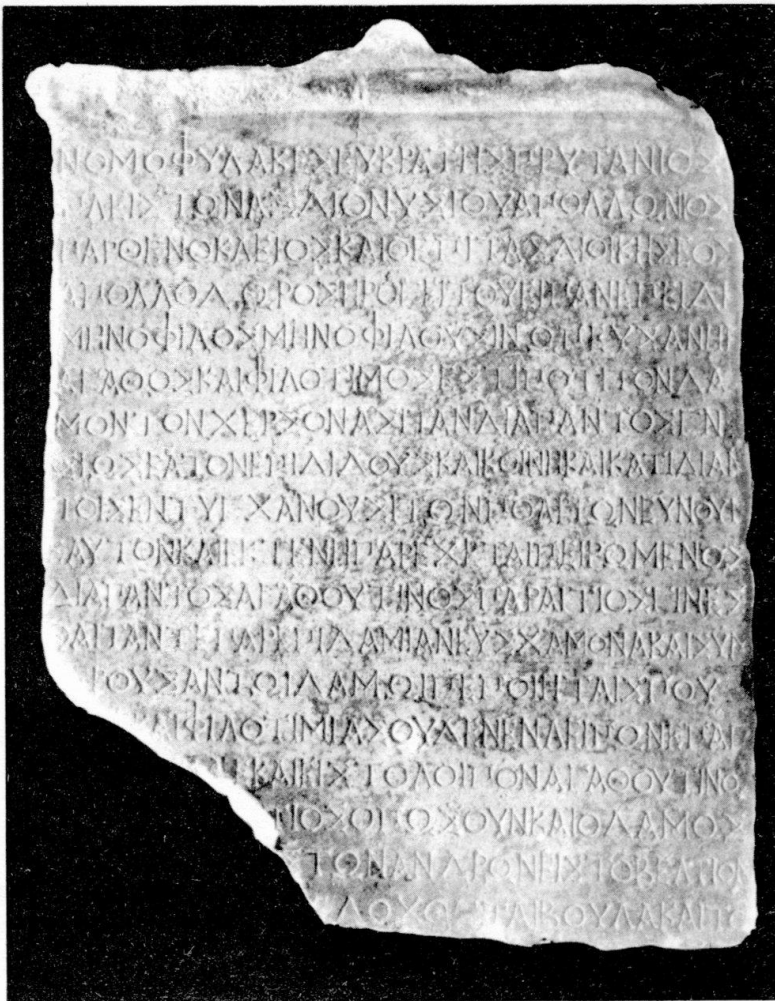 ΝΟΜΟΦΥΛΑΚΕΣΕΥΚΡΑΤΗΣΠΡΥΤΑΝΙΟΣ
ΔΙΟΝΥΣΙΟΥΑΠΟΛΛΩΝΙΟΣ
ΠΑΡΘΕΝΟΚΛΕΙΟΣΚΑΙΟΕΠΙΤΑΣΔΙΟΙΚΗΣΕΟΣ
ΑΠΟΛΛΟΔΩΡΟΣΗΡΟΓΕΙΤΟΥΕΙΠΑΝΕΠΕΙΔΗ
ΜΗΝΟΦΙΛΟΣΜΗΝΟΦΙΛΟΥΣΙΝΩΠΕΥΣΑΝΗΡ
ΑΓΑΘΟΣΚΑΙΦΙΛΟΤΙΜΟΣΕΣΤΙΠΟΤΙΤΟΝΔΑ
ΜΟΝΤΟΝΧΕΡΣΟΝΑΣΙΤΑΝΔΙΑΠΑΝΤΟΣΓΝΗ
ΣΙΩΣΕΑΤΟΝΕΠΙΔΙΔΟΥΣΚΑΙΚΟΙΝΕΙΚΑΙΚΑΤΙΔΙΑΝ
ΤΟΙΣΕΝΤΥΓΧΑΝΟΥΣΙΤΩΝΠΟΛΙΤΩΝΕΥΝΟΥΝ
ΑΥΤΟΝΚΑΙΕΚΤΕΝΗΠΑΡΕΧΕΤΑΙΠΕΙΡΩΜΕΝΟΣ
ΔΙΑΠΑΝΤΟΣΑΓΑΘΟΥΤΙΝΟΣΠΑΡΑΙΤΙΟΣΓΙΝΕΣ
ΘΑΙΤΑΝΤΕΠΑΡΕΠΙΔΑΜΙΑΝΕΥΣΧΑΜΟΝΑΚΑΙΣΥΜ
ΡΟΥΣΑΝΤΩΙΔΑΜΩΙΠΕΠΟΙΗΤΑΙΣΠΟΥ
ΚΑΙΦΙΛΟΤΙΜΙΑΣΟΥΔΕΝΕΝΛΕΙΠΩΝ
ΚΑΙΕΙΣΤΟΛΟΙΠΟΝΑΓΑΘΟΥΤΙΝΟ
ΤΙΟΣΟΠΩΣΟΥΝΚΑΙΟΔΑΜΟΣ
ΤΩΝΑΝΔΡΩΝΕΙΣΤΟΒΕΛΤΙΟΝ
ΔΟΧΘΑΙΤΑΙΒΟΥΛΑΙΚΑΙΤΩ